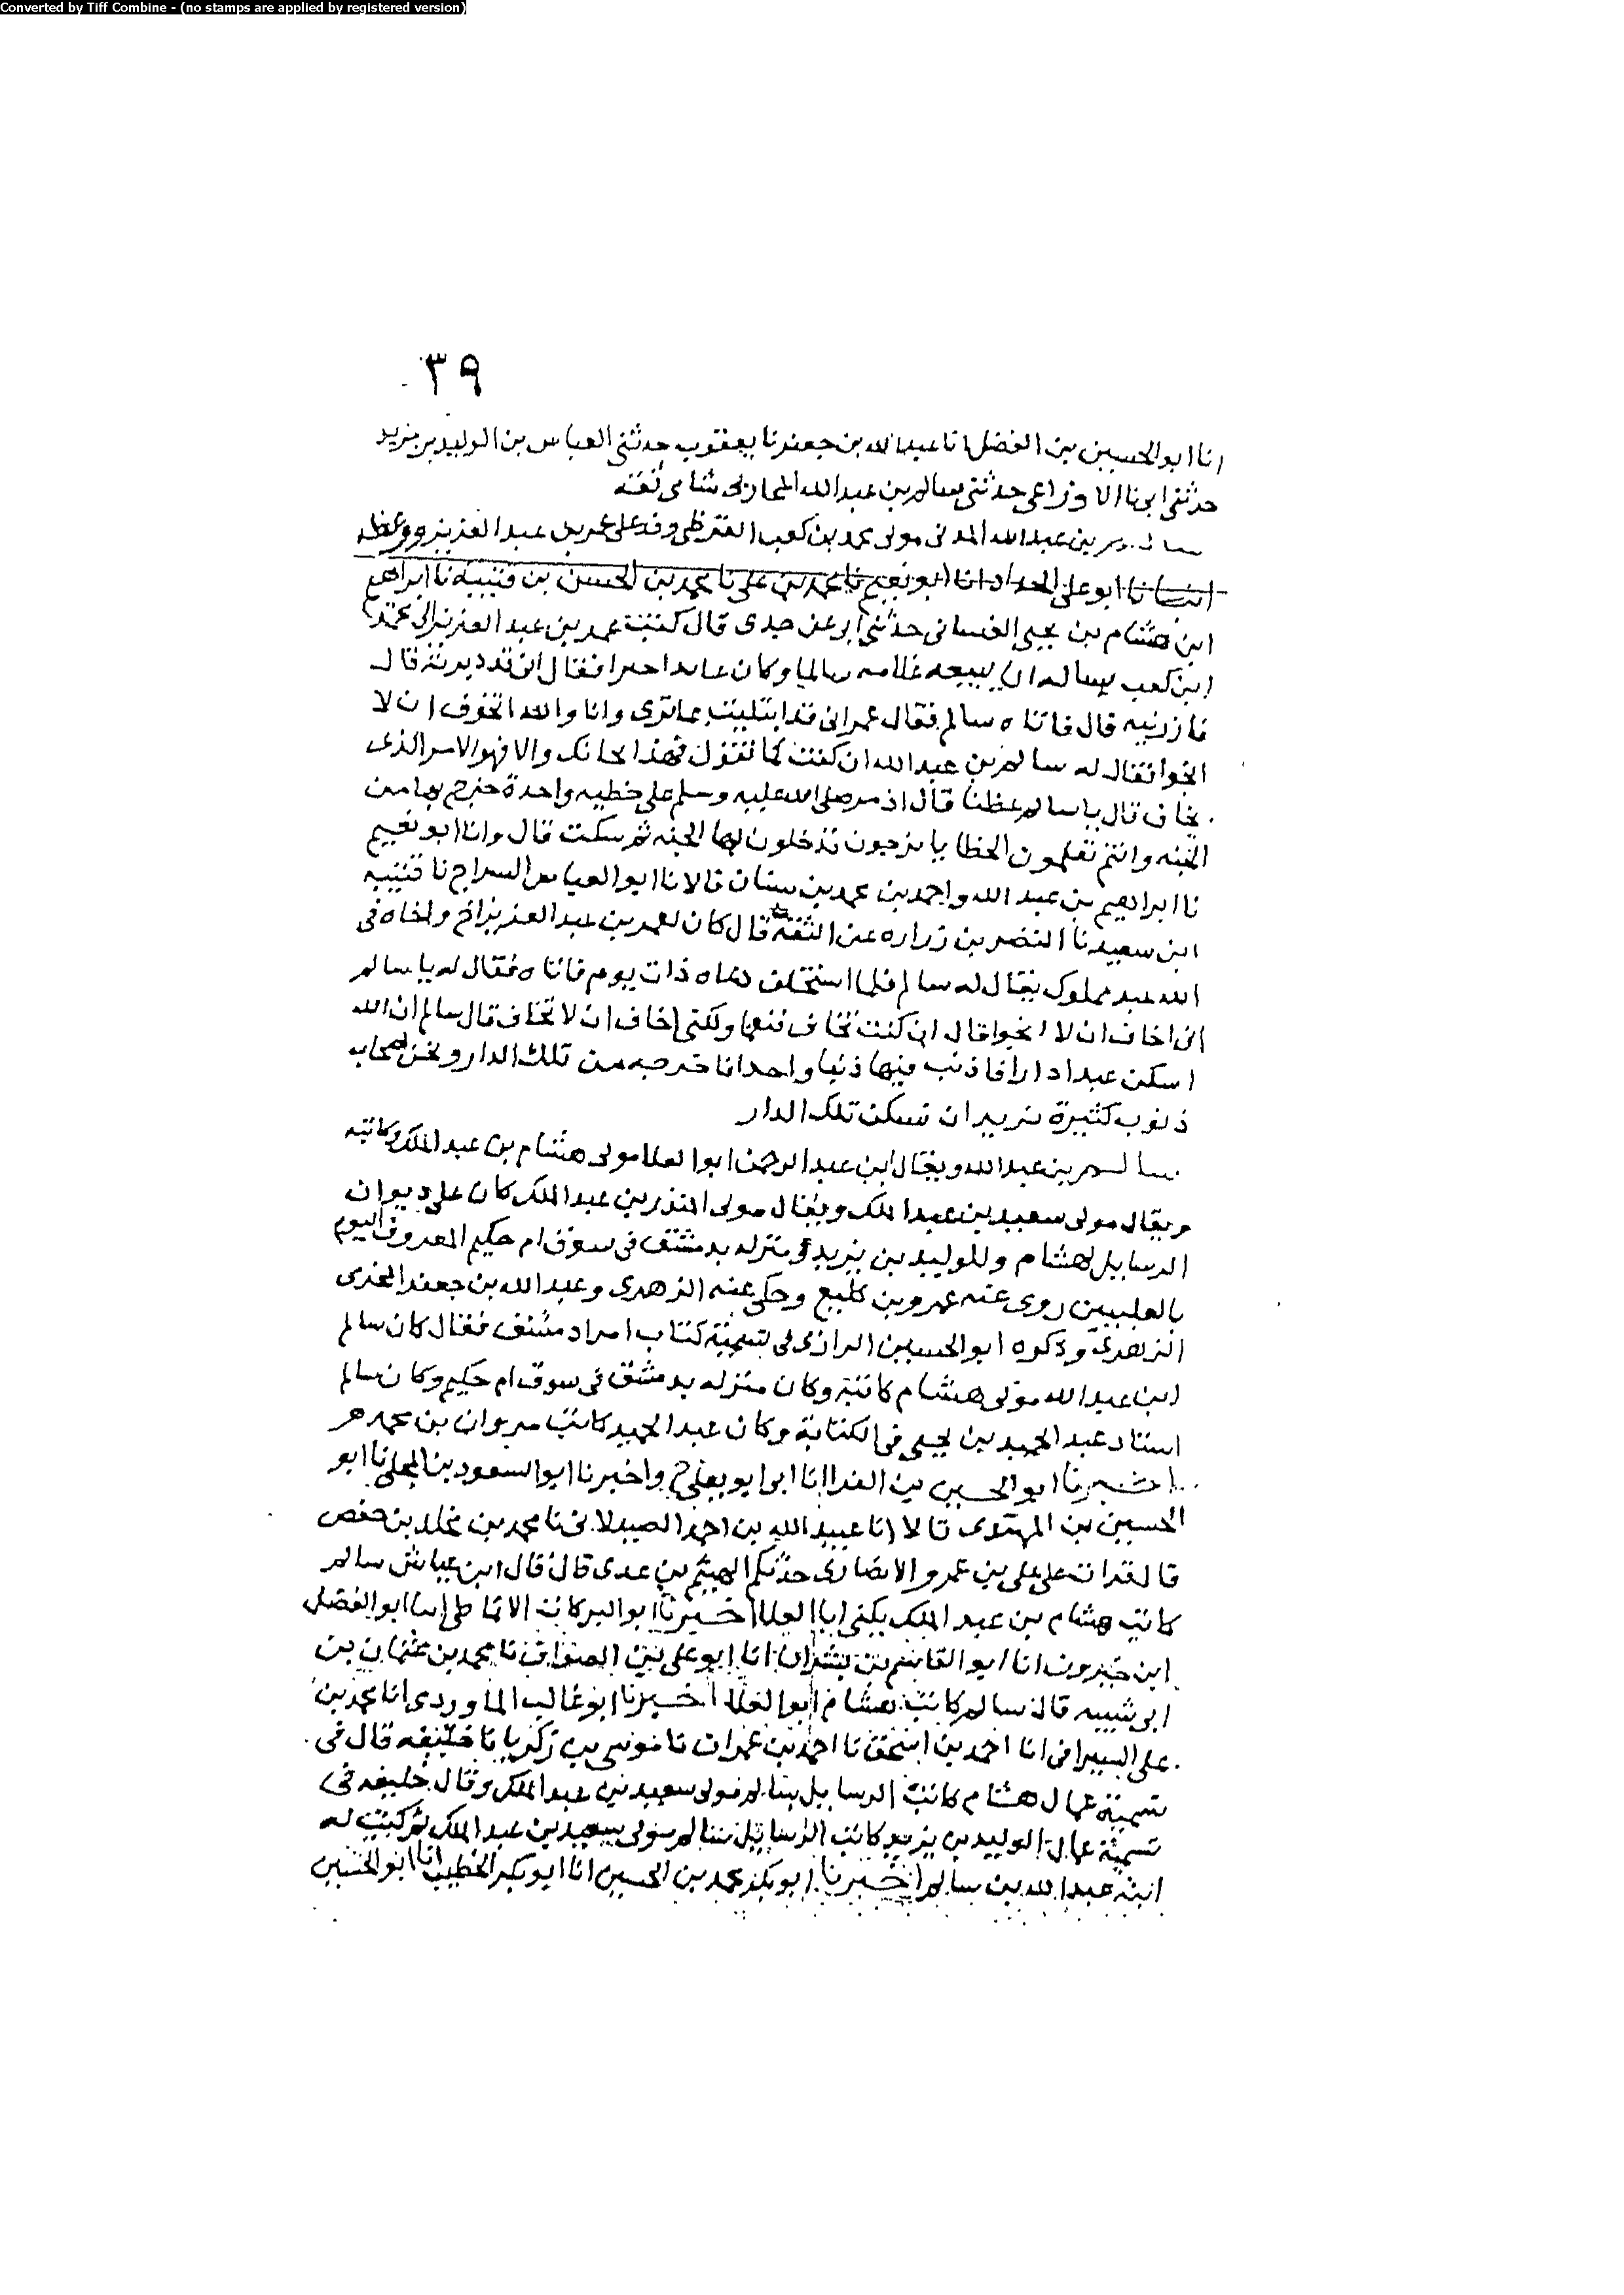 Converted by Tiff Combine - (no stamps are applied by registered version)
٣٩
انا ابو الحسين بن الفضل انا عبد الله بن جعفر نا يعقوب حدثني العباس بن الوليد بن مزيد
حدثني ابي نا الاوزاعي حدثني سالم بن عبد الله المحاربي شامي ثقة
سالم بن عبد الله المدني مولى محمد بن كعب القرظي وفد على عمر بن عبد العزيز ووعظه
انبانا ابو علي الحداد انا ابو نعيم نا محمد بن علي نا محمد بن الحسن بن قتيبة نا ابراهيم
ابن هشام بن يحيى الغساني حدثني ابي عن جدي قال كتب عمر بن عبد العزيز الى محمد
ابن كعب يساله ان يبيعه غلامه سالما وكان عابدا خيرا فقال اني قد دبرته قال
فازرنيه قال فاتاه سالم فقال عمر اني قد ابتليت بما ترى وانا والله اتخوف ان لا
انجوا فقال له سالم بن عبد الله ان كنت كما تقول فهذا نجاتك والا فهو الامر الذي
نخاف قال يا سالم عظنا قال ادم صلى الله عليه وسلم على خطيه واحدة خرج بها من
الجنه وانتم تعملون الخطايا ترجون تدخلون بها الجنه ثم سكت قال وانا ابو نعيم
نا ابراهيم بن عبد الله واحمد بن محمد بن سنان قالا نا ابو العباس السراج نا قتيبه
ابن سعيد نا النضر بن زراره عن الثقة قال كان لعمر بن عبد العزيز اخ واخاه في
الله عبد مملوك يقال له سالم فلما استخلف دعاه ذات يوم فاتاه فقال له يا سالم
اني اخاف ان لا انجوا قال ان كنت تخاف فنعما ولكني اخاف ان لا تخاف قال سالم ان الله
اسكن عبدا دارا فاذنب فيها ذنبا واحدا فاخرجه من تلك الدار ونحن اصحاب
ذنوب كثيرة نريد ان نسكن تلك الدار
سالم بن عبد الله ويقال ابن عبد الرحمن ابو العلا مولى هشام بن عبد الملك وكاتبه
ويقال مولى سعيد بن عبد الملك ويقال مولى المنذر بن عبد الملك كان على ديوان
الرسايل لهشام وللوليد بن يزيد ومنزله بدمشق في سوق ام حكيم المعروف اليوم
بالعلبيين روى عنه عمرو بن كليع وحكى عنه الزهري وعبد الله بن جعفر المخري
الزهري وذكره ابو الحسين الرازي في تسمية كتاب امراء دمشق فقال كان سالم
ابن عبد الله مولى هشام كاتبه وكان منزله بدمشق في سوق ام حكيم وكان سالم
استاد عبد الحميد بن يحيى في الكتابة وكان عبد الحميد كاتب مروان بن محمد
اخبرنا ابو الحسين بن الفرا انا ابي ابو يعلى ح واخبرنا ابو السعود بن المجلي نا ابو
الحسين بن المهتدي قالا انا عبيد الله بن احمد الصيدلاني نا محمد بن مخلد بن حفص
قال قرات على علي بن عمرو الانصاري حدثكم الهيثم بن عدي قال قال ابن عياش سالم
كاتب هشام بن عبد الملك يكنى ابا العلا اخبرنا ابو البركات الانماطي انا ابو الفضل
ابن خيرون انا ابو القاسم بن بشران انا ابو علي بن الصواف نا محمد بن عثمان بن
ابي شيبه قال سالم كاتب هشام ابو العلا اخبرنا ابو غالب الماوردي انا محمد بن
علي السيرافي انا احمد بن اسحق نا احمد بن عمران نا موسى بن زكريا نا خليفه قال في
تسمية عمال هشام كاتب الرسايل سالم مولى سعيد بن عبد الملك وقال خليفه في
تسمية عمال الوليد بن يزيد كاتب الرسايل سالم مولى سعيد بن عبد الملك ثم كتب له
ابنه عبد الله بن سالم اخبرنا ابو بكر محمد بن الحسين انا ابو بكر الخطيب انا ابو الحسين